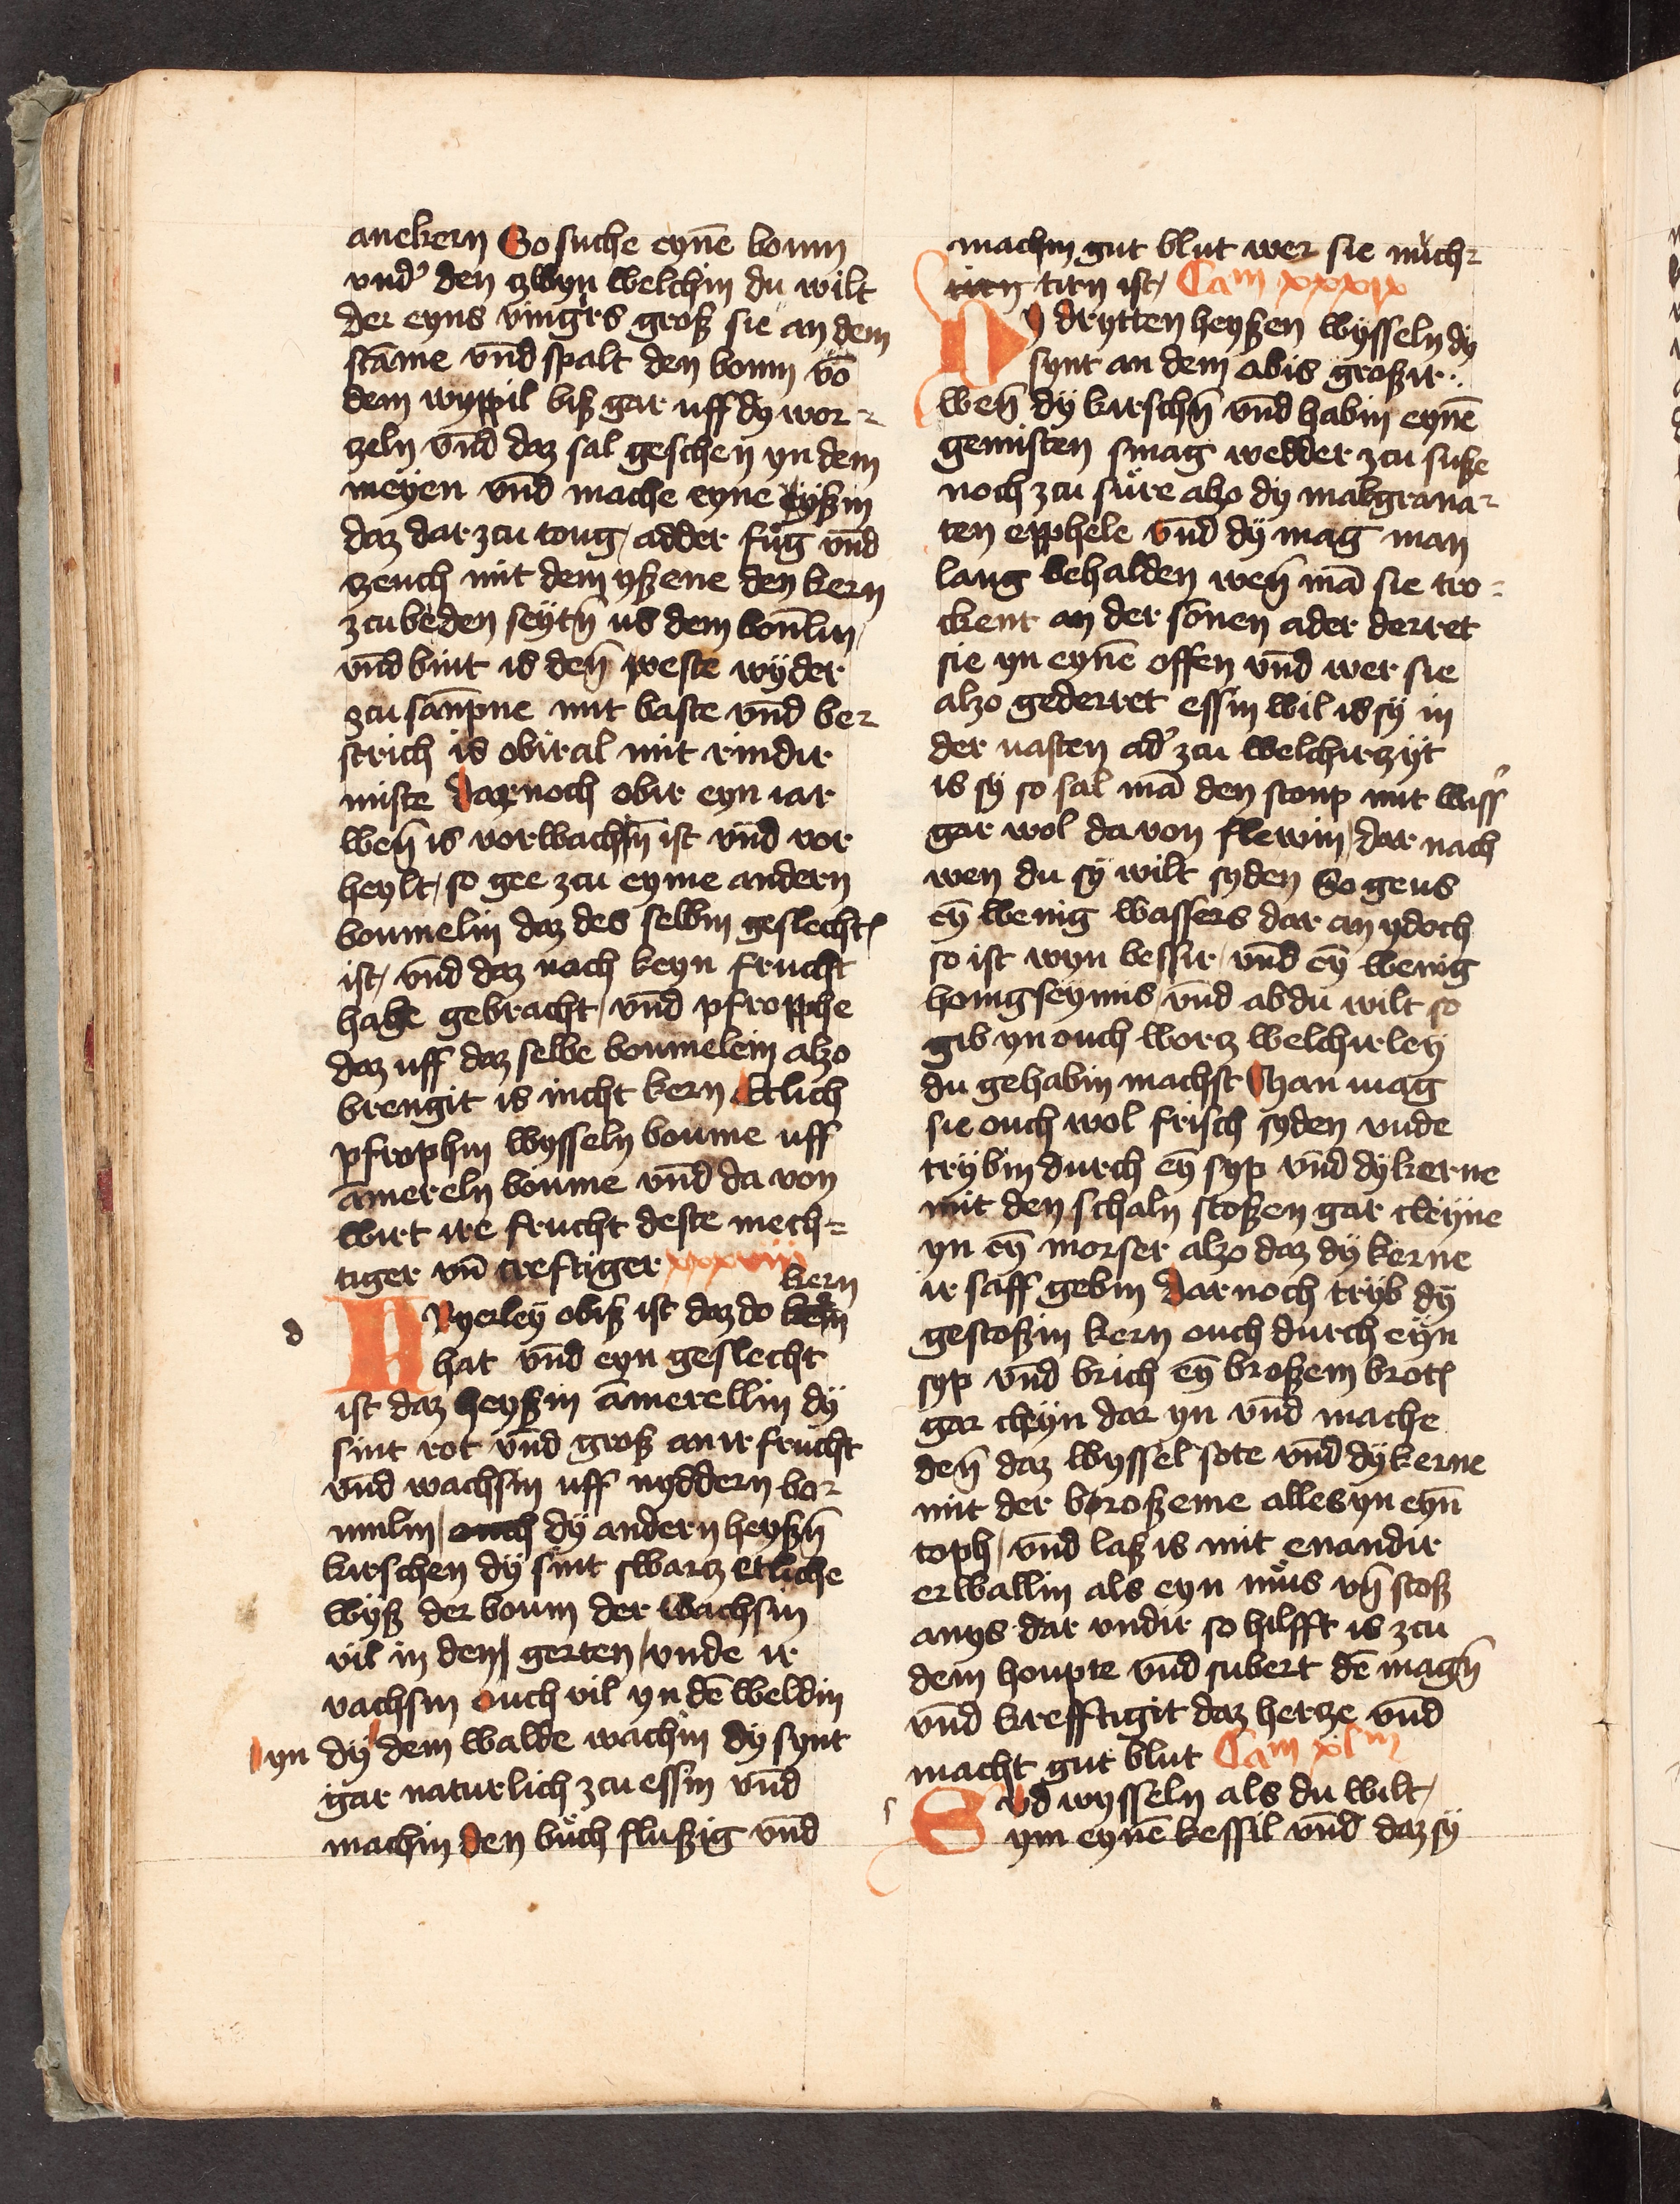 anekern So suche eynē boum
vnd' den zwyn welchin du wilt
der eyns vingers groß sie an dem
stāme vnd spalt den boum vō
dem wyppil biß gar uff dy wor-
zeln vnd daz sal geschen yn dem
meyen vnd mache eyne yßin
daz dar zcu toug / adder fug vnd
zeuch mit dem yßene den kern
zcu beden seytn̄ us dem boumlin
vnd bint is den̄ veste wyder
zcu sampne mit baste vnd be-
strich is obiral mit rindir
miste dar noch obir eyn iar
wen̄ is vorwachsin ist vnd vor
heylt / so gee zcu eyme andern
boumelin daz des selbin geslechtꝭ
ist / vnd daz nach keyn frucht
habe gebracht / vnd pfropphe
daz uff daz selbe boumelein alzo
brengit is nicht kern Etlich
pfrophin wysseln boume uff
āmereln boume vnd da von
wirt ire frucht deste mech-
tiger vn̄ creftiger xxxviii
kern
Dryerley obiß ist daz do
hat vnd eyn geslecht
ist daz heyßin āmerellin dy
sint rot vnd groß an ir frucht
vnd wachsin uff nyddern bo-
umlin / ouch dy andern heyßn̄
kirschen dy sint swarcz etliche
wyß der boum der wachsin
vil in den gerten / vnde ir
vachsin ouch vil yn dē weldin
yn dy dem walde wachin dy synt
gar naturlich zcu essin vnd
machin den buch flußig vnd
machin gut blut wer sie nuch-
tirn ist / Cam xxxix
Dy drytten heyßen wysseln dy
synt an dem abis großir
wen̄ dy kirschn̄ vnd habin eynē
gemisten smag wedder zcu suße
noch zcu sure alzo dy malgrana-
ten epphele vnd dy mag man
lang behalden wen̄ mā sie tro-
ckent an der sonen ader derret
sie yn eynē offen vnd wer sie
alzo gederret essin wil is sy in
der vasten ad' zcu welchir zyt
is sy so sal mā den stoup mit wass'
gar wol da von flewin / dar nach
wen du sy wilt syden So geus
ey̅ wenig wassers dar an ydoch
so ist wyn bessir / vnd ey̅ wenig
honigseymis / vnd ab du wilt so
gib yn ouch worcz welchirley
du gehabin machst Man mag
sie ouch wol frisch syden vnde
trybin durch ey̅ syp vnd dy kerne
mit den schaln stoßen gar cleyne
yn ey̅ morser alzo daz dy kerne
ir saff gebin dar noch tryb dy
gestoßin kern ouch durch eyn
syp vnd brich ey̅ broßem brotꝭ
gar cleyn dar yn vnd mache
den̄ daz wyssel sote vnd dy kerne
mit der broßeme alles yn eyn̄
toph / vnd laß is mit enandir
erwallin als eyn mus vn̄ stoß
anys dar vndir so hilfft is zcu
dem houpte vnd subert dē magn̄
vnd krefftigit daz hercze vnd
macht gut blut Cam xlm
Syd wysseln als du wilt /
ym eynē kessil vnd daz sy